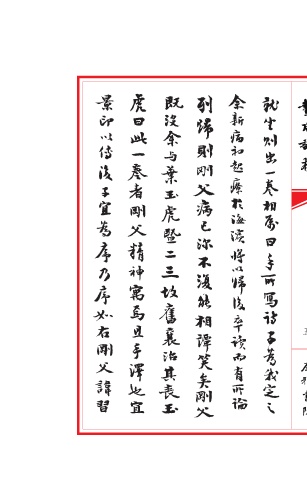 就坐則出一卷相屬曰手所寫詩子為我定之
余新病初起療於海濱將以歸後卒讀而有所論
列歸則剛父病已弥不復能相譚笑矣剛父
既沒余与葉玉虎暨二三故舊襄治其喪玉
虎曰此一卷者剛父精神寓焉且手澤也宜
景印以傳後子宜為序乃序如右剛父諱習